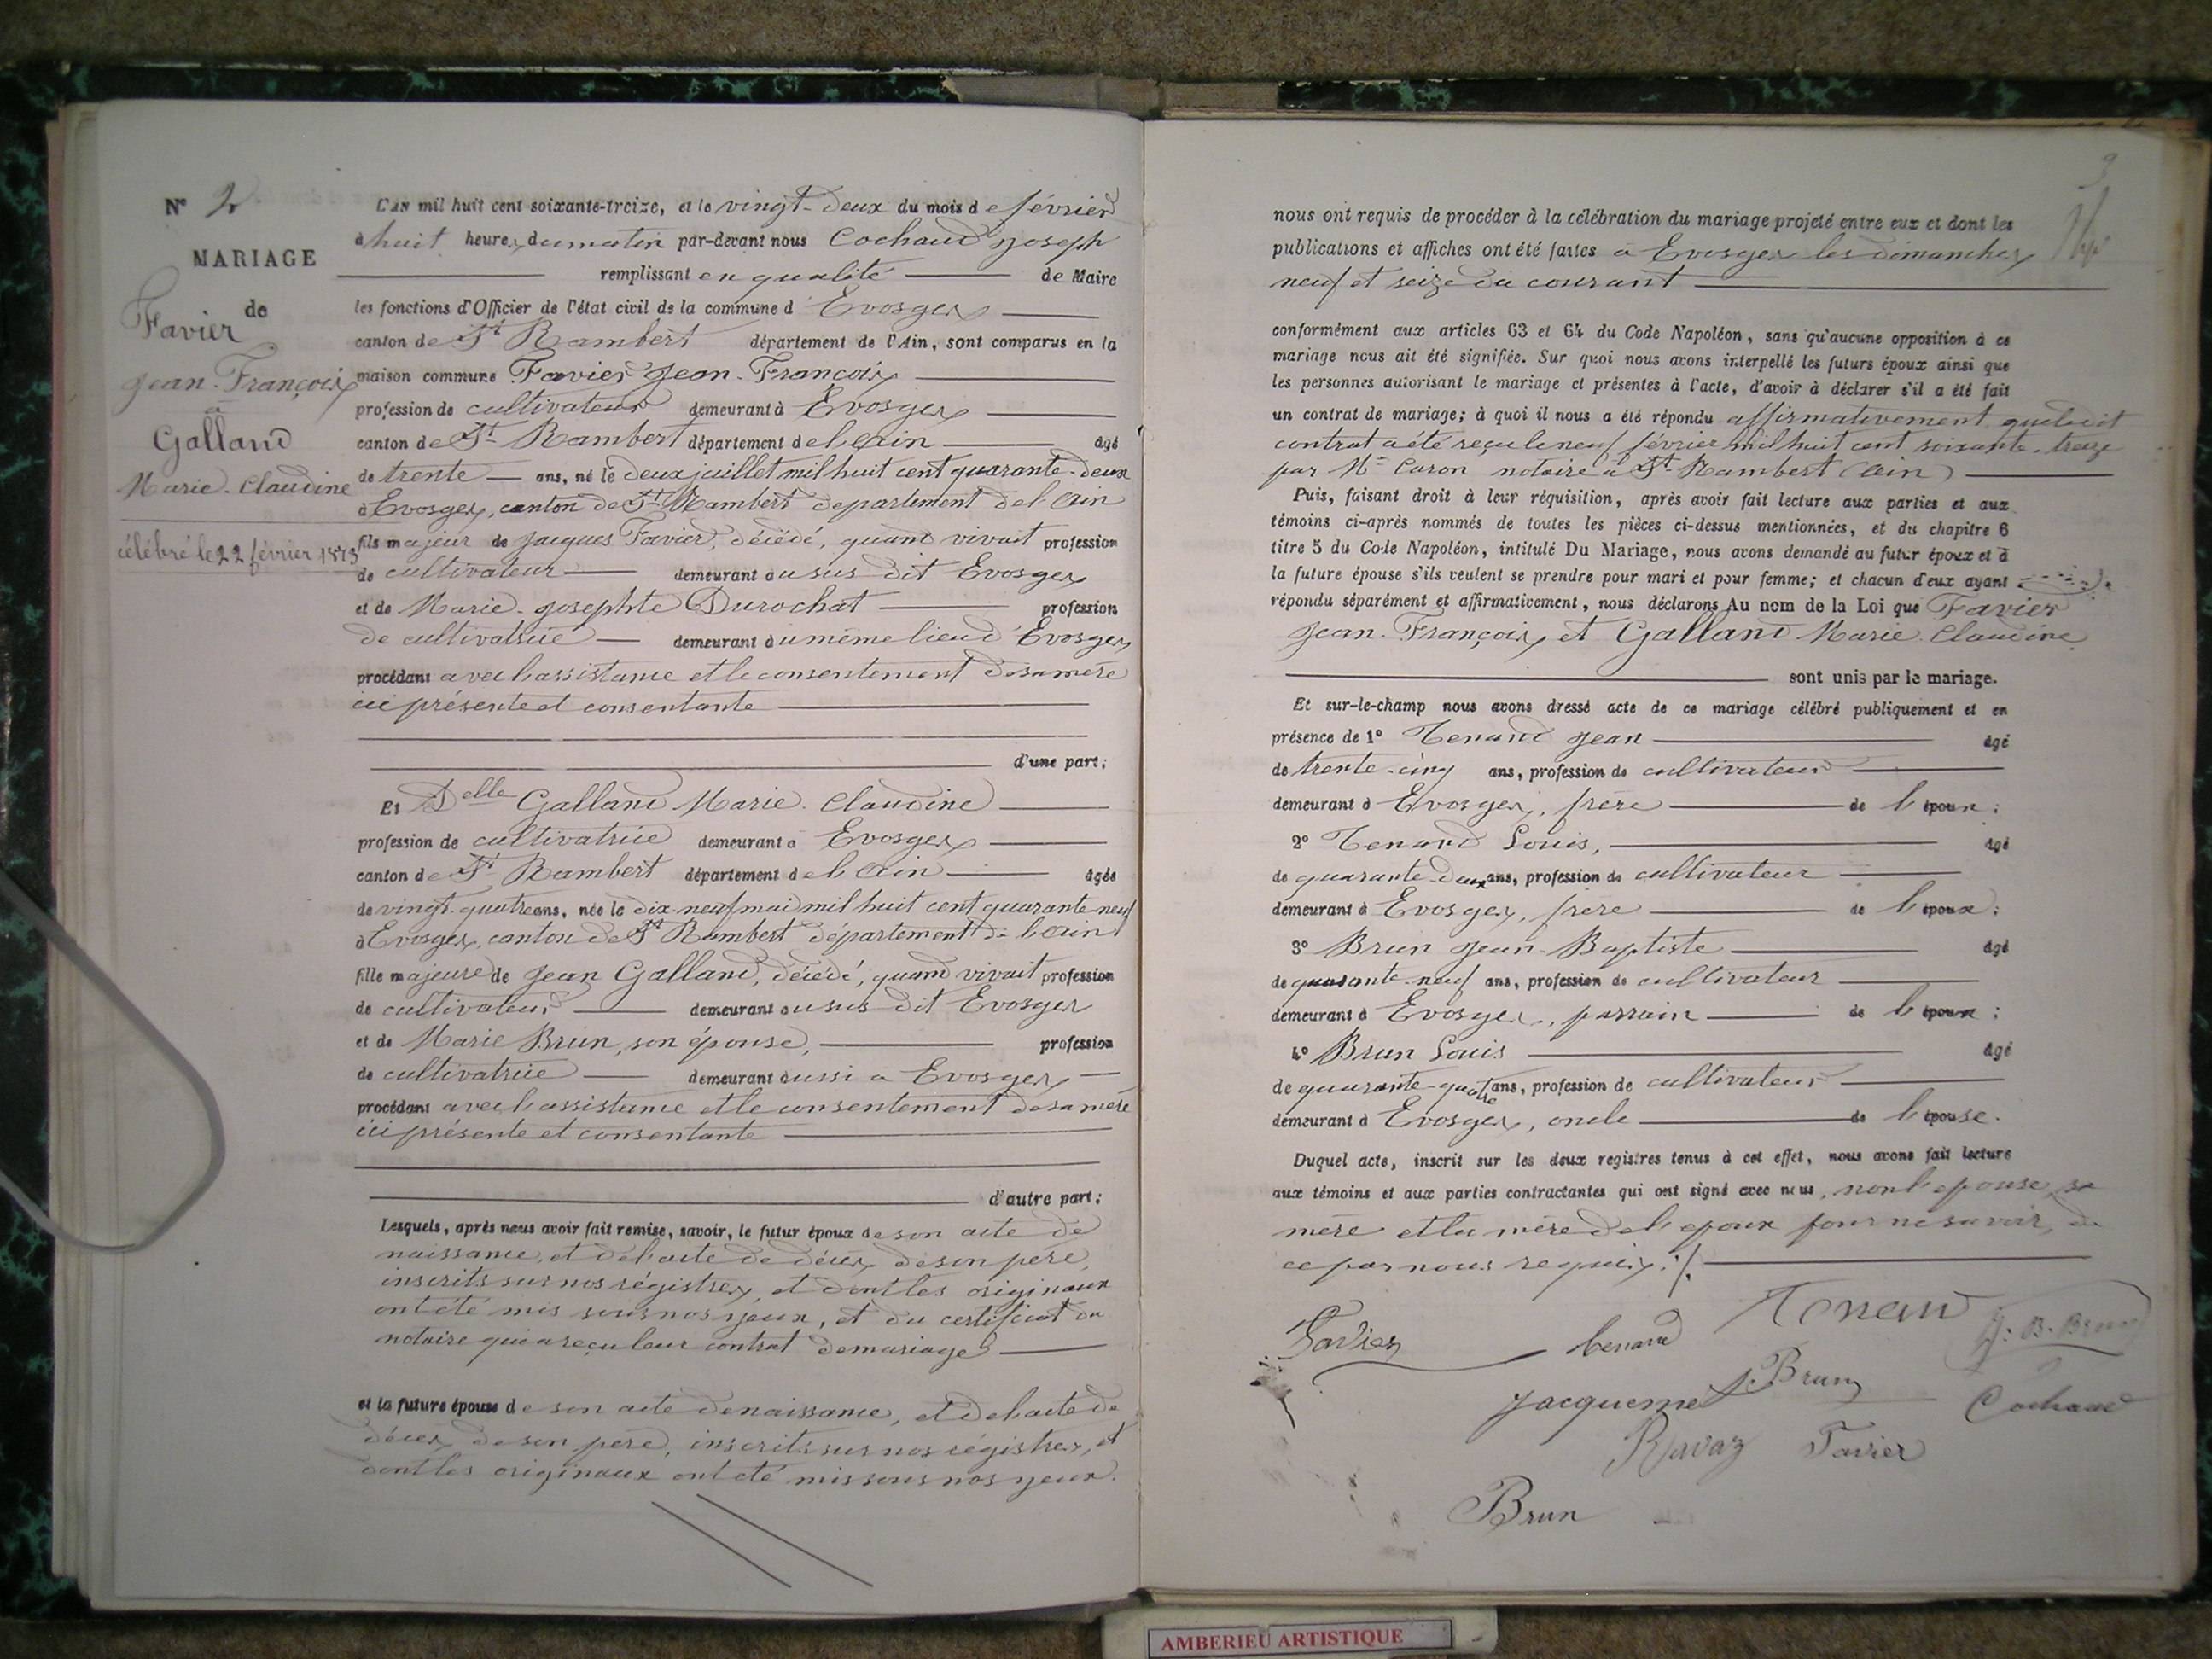 N° 2
MARIAGE
de
Favier
Jean-François
à
Galland
Marie-Claudine
célébré le 22 février 1873
L'AN mil huit cent soixante-treize, et le vingt-deux du mois de février
à huit heures du matin par-devant nous Cochaud Joseph
remplissant en qualité de Maire
les fonctions d'Officier de l'état civil de la commune d'Evosges
canton de St Rambert département de l'Ain, sont comparus en la
maison commune Favier Jean-François
profession de cultivateur demeurant à Evosges
canton de St Rambert département de l'ain âgé
de trente ans, né le deux juillet mil huit cent quarante-deux
à Evosges, canton de St Rambert département de l'Ain
fils majeur de Jacques Favier, décédé, quand vivait profession
de cultivateur demeurant au sus dit Evosges
et de Marie-Josephte Durochat profession
de cultivatrice demeurant au même lieu d'Evosges
procédant avec l'assistance et le consentement de sa mère
ici présente et consentante
d'une part;
Et Delle Galland Marie-Claudine
profession de cultivatrice demeurant à Evosges
canton de St Rambert département de l'Ain âgée
de vingt-quatre ans, née le dix-neuf mai mil huit cent quarante-neuf
à Evosges, canton de St Rambert département de l'ain
fille majeure de Jean Galland, décédé, quand vivait profession
de cultivateur demeurant au sus dit Evosges
et de Marie Brun, son épouse, profession
de cultivatrice demeurant aussi à Evosges
procédant avec l'assistance et le consentement de sa mère
ici présente et consentante
d'autre part;
Lesquels, après nous avoir fait remise, savoir, le futur époux de son acte de
naissance, et de l'acte de décès de son père,
inscrits sur nos régistres, et dont les originaux
ont été mis sous nos yeux, et du certificat du
notaire qui a reçu leur contrat de mariage
et la future épouse de son acte de naissance, et de l'acte de
décès de son père, inscrits sur nos régistres, et
dont les originaux ont été mis sous nos yeux.
3
nous ont requis de procéder à la célébration du mariage projeté entre eux et dont les
publications et affiches ont été faites à Evosges les dimanches
neuf et seize du courant
conformément aux articles 63 et 64 du Code Napoléon, sans qu'aucune opposition à ce
mariage nous ait été signifiée. Sur quoi nous avons interpellé les futurs époux ainsi que
les personnes autorisant le mariage et présentes à l'acte, d'avoir à déclarer s'il a été fait
un contrat de mariage; à quoi il nous a été répondu affirmativement que ledit
contrat a été reçu le neuf février mil huit cent soixante-treize
par Me Caron notaire à St Rambert (Ain)
Puis, faisant droit à leur réquisition, après avoir fait lecture aux parties et aux
témoins ci-après nommés de toutes les pièces ci-dessus mentionnées, et du chapitre 6
titre 5 du Code Napoléon, intitulé Du Mariage, nous avons demandé au futur époux et à
la future épouse s'ils veulent se prendre pour mari et pour femme; et chacun d'eux ayant
répondu séparément et affirmativement, nous déclarons Au nom de la Loi que Favier
Jean-François et Galland Marie-Claudine
sont unis par le mariage.
Et sur-le-champ nous avons dressé acte de ce mariage célébré publiquement et en
présence de 1° Tenand Jean âgé
de trente-cinq ans, profession de cultivateur
demeurant à Evosges, frère de l'époux;
2° Tenand Louis, âgé
de quarante-deux ans, profession de cultivateur
demeurant à Evosges, frère de l'époux;
3° Brun Jean-Baptiste âgé
de quarante-neuf ans, profession de cultivateur
demeurant à Evosges, parrain de l'époux;
4° Brun Louis âgé
de quarante-quatre ans, profession de cultivateur
demeurant à Evosges, oncle de l'épouse.
Duquel acte, inscrit sur les deux registres tenus à cet effet, nous avons fait lecture
aux témoins et aux parties contractantes qui ont signé avec nous, non l'épouse, sa
mère et la mère de l'époux pour ne savoir, de
ce par nous requis./.
Favier tenand Tenand J. B. Brun
Jacquemet L. Brun Cochaud
Ravaz Favier
Brun
AMBERIEU ARTISTIQUE